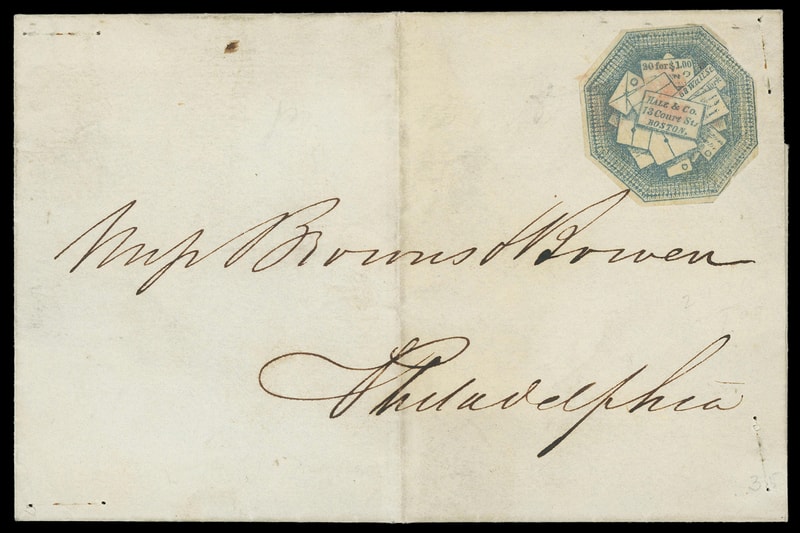 20 for $1.00
HALE & Co.
13 Court St
BOSTON.
Messrs Browns & Bowen
Philadelphia